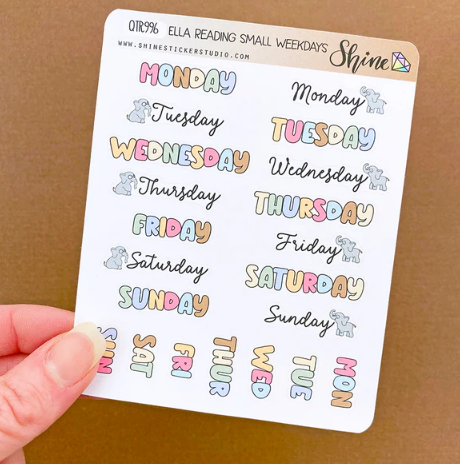 QTR996 ELLA READING SMALL WEEKDAYS
WWW.SHINESTICKERSTUDIO.COM
Shine
MONDAY
Monday
Tuesday
TUESDAY
WEDNESDAY
Wednesday
Thursday
THURSDAY
FRIDAY
Friday
Saturday
SATURDAY
SUNDAY
Sunday
SUN
SAT
FRI
THUR
WED
TUE
MON